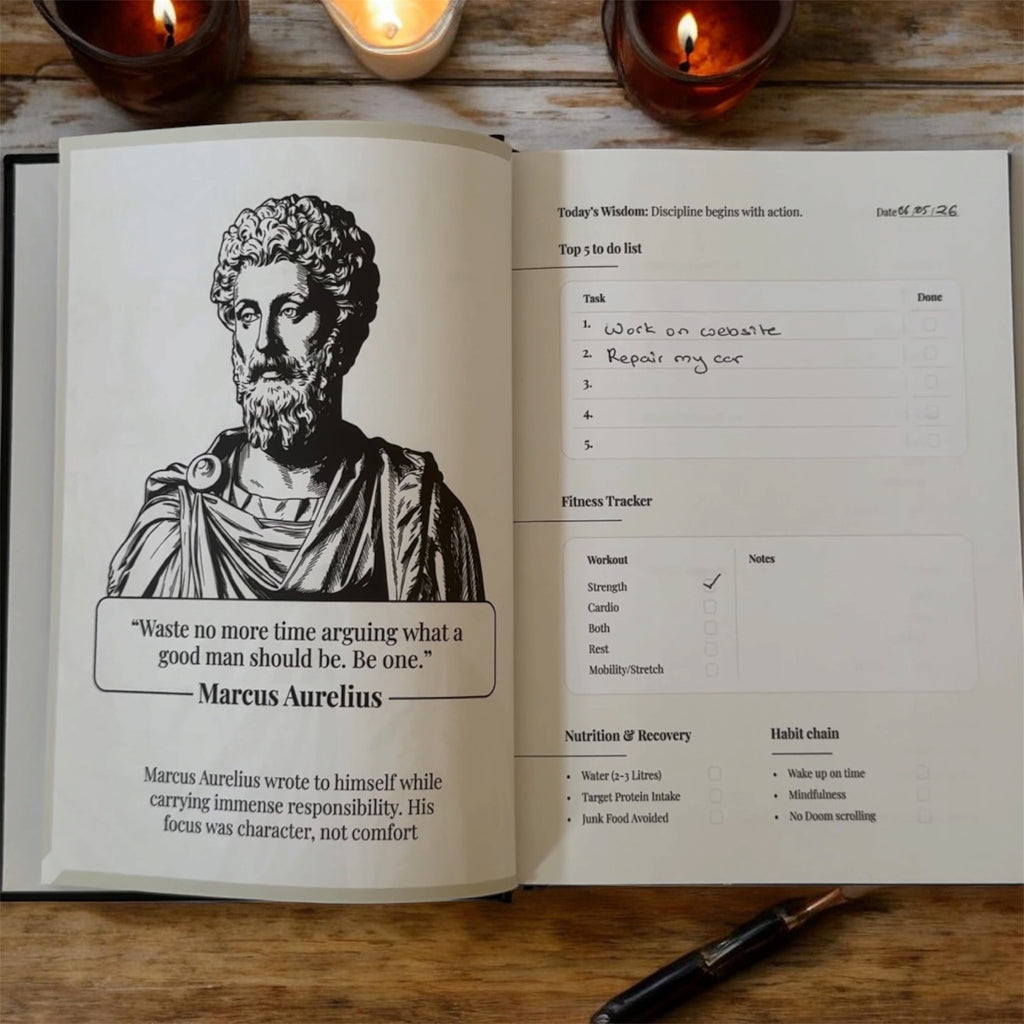 “Waste no more time arguing what a
good man should be. Be one.”
Marcus Aurelius
Marcus Aurelius wrote to himself while
carrying immense responsibility. His
focus was character, not comfort
Today's Wisdom: Discipline begins with action.
Date 06/05/26
Top 5 to do list
Task Done
1. Work on website
2. Repair my car
3.
4.
5.
Fitness Tracker
Workout Notes
Strength
Cardio
Both
Rest
Mobility/Stretch
Nutrition & Recovery
• Water (2-3 Litres)
• Target Protein Intake
• Junk Food Avoided
Habit chain
• Wake up on time
• Mindfulness
• No Doom scrolling